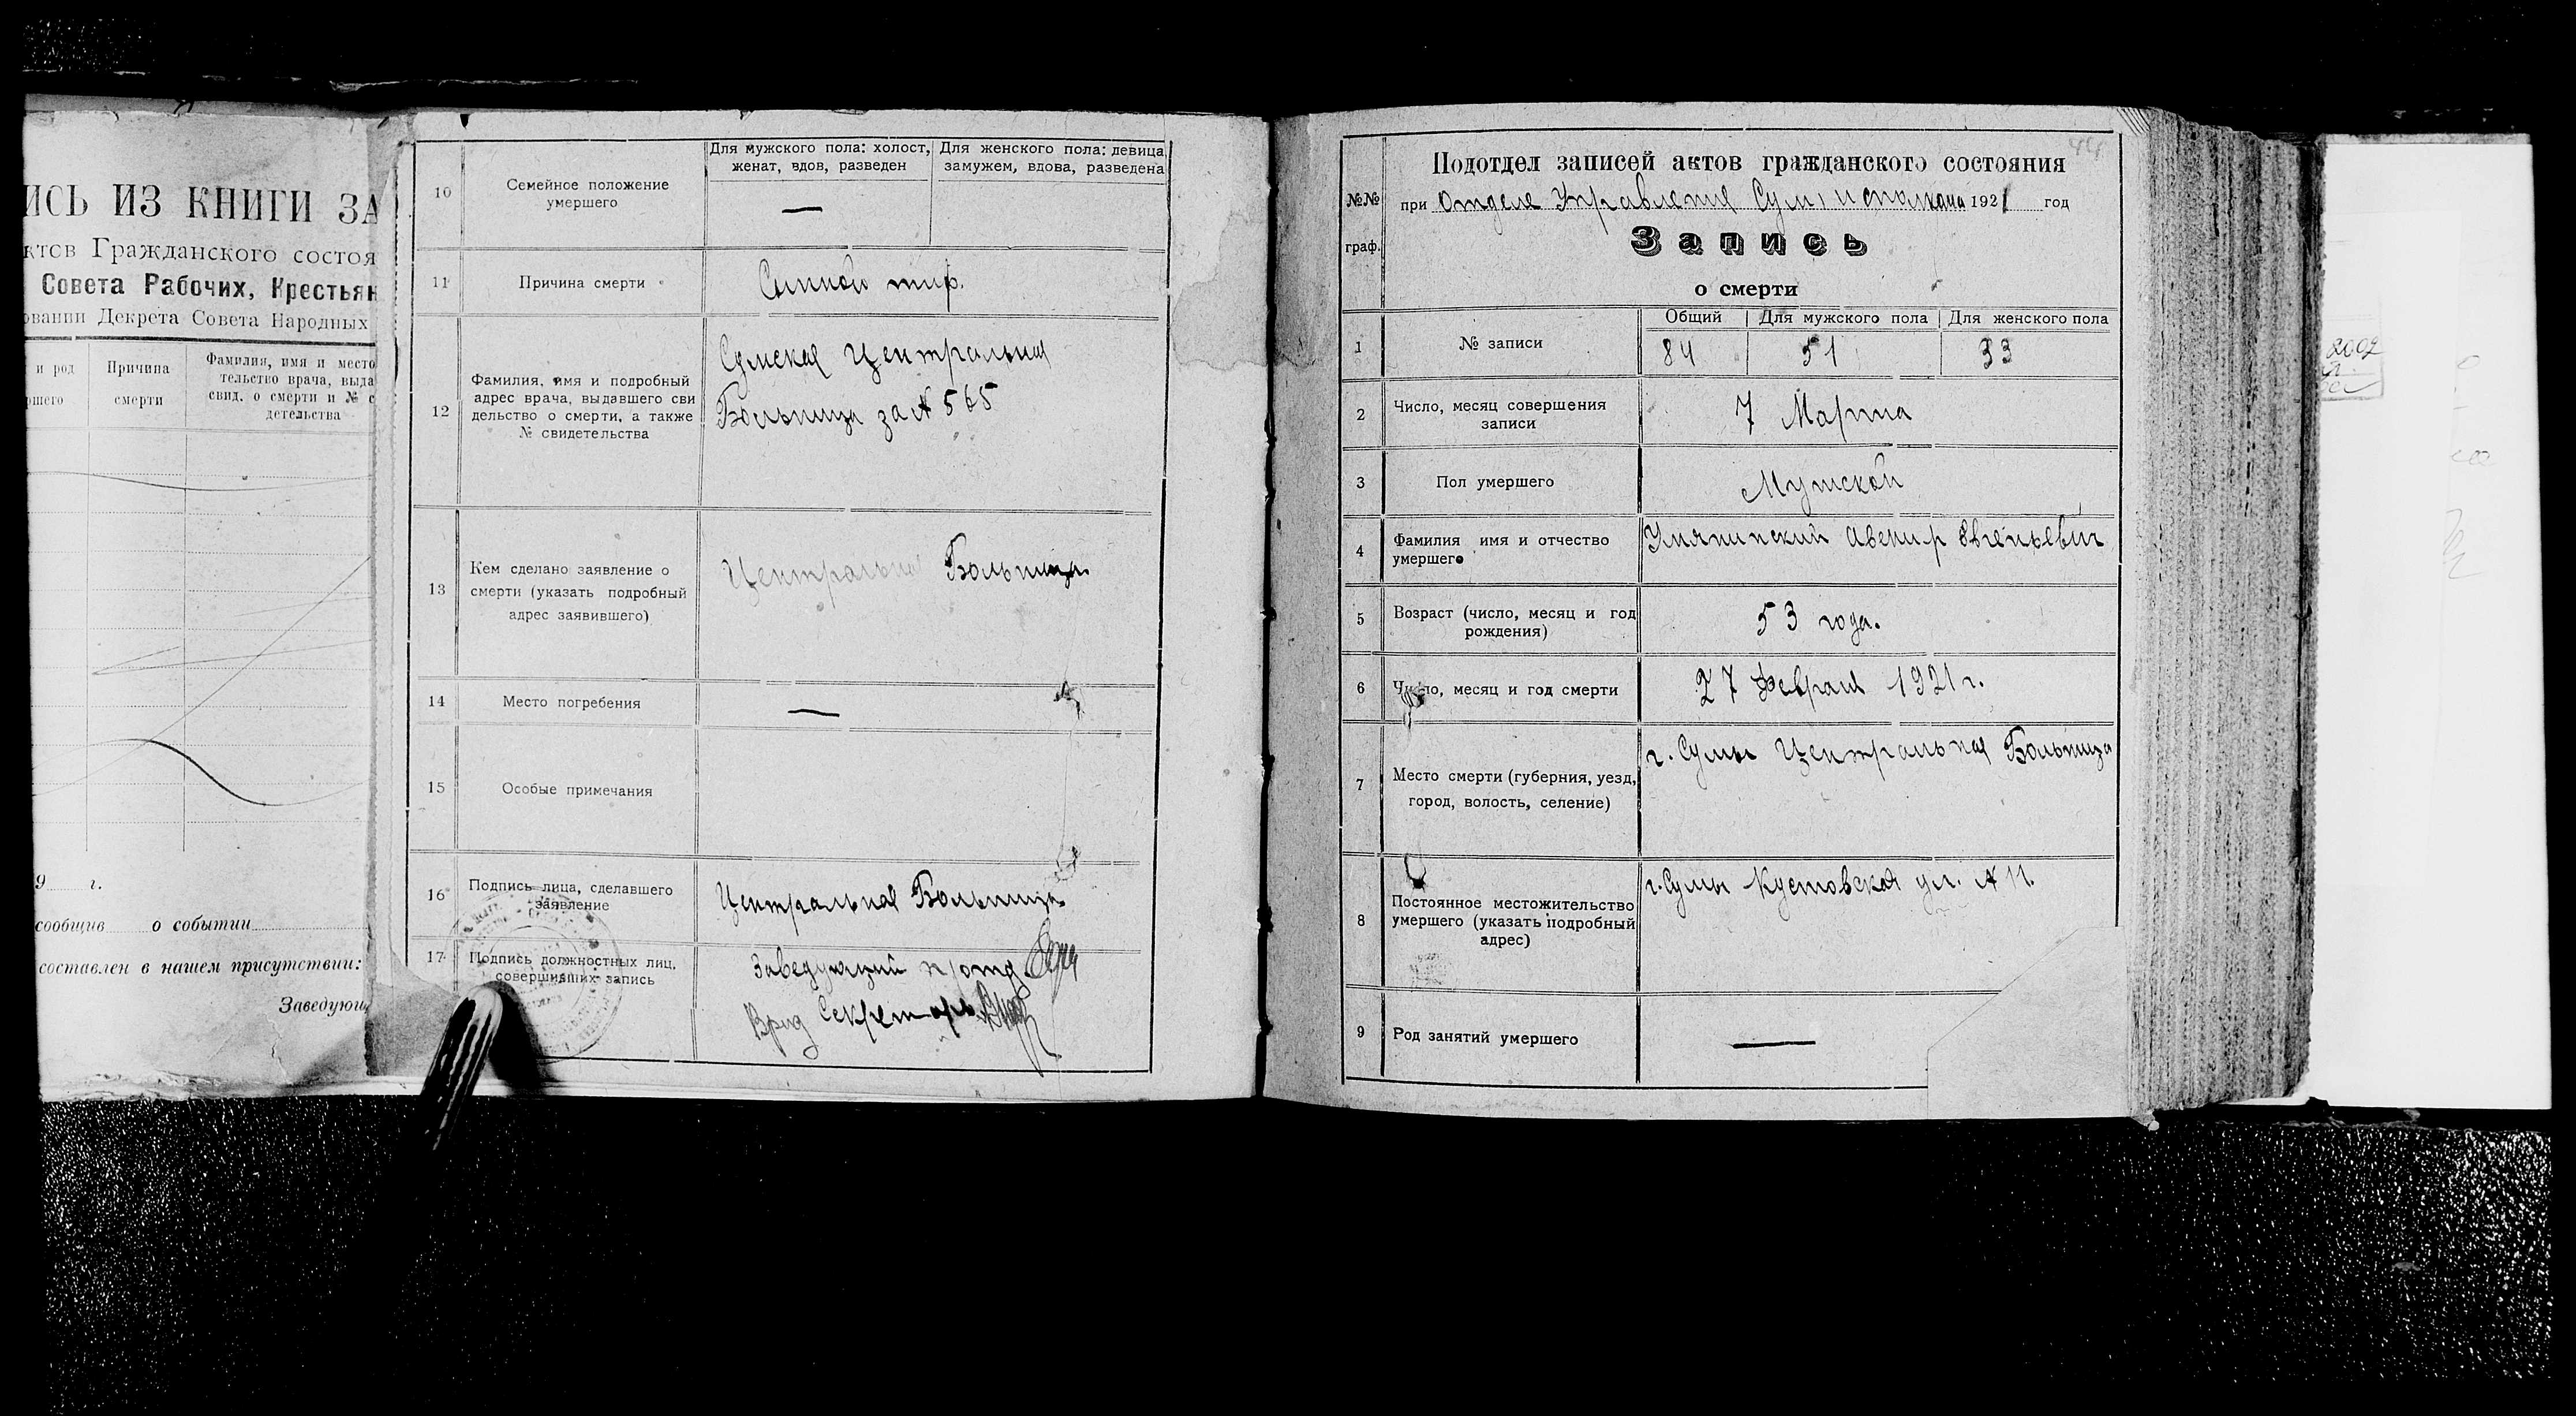 ИСЬ ИЗ КНИГИ ЗА
ктов Гражданского состоя
Совета Рабочих, Крестьян
овании Декрета Совета Народных
и род
ршего
Причина
смерти
Фамилия, имя и место
тельство врача, выда
свид. о смерти и № с
детельства
9 г.
сообщив о событии
составлен в нашем присутствии:
Заведующ
10
Семейное положение
умершего
Для мужского пола: холост,
женат, вдов, разведен
Для женского пола: девица,
замужем, вдова, разведена
—
11
Причина смерти
Сыпной тиф.
12
Фамилия, имя и подробный
адрес врача, выдавшего сви
дельство о смерти, а также
№ свидетельства
Сумская Центральная
Больница за № 565
13
Кем сделано заявление о
смерти (указать подробный
адрес заявившего)
Центральная Больница
14
Место погребения
—
15
Особые примечания
16
Подпись лица, сделавшего
заявление
Центральная Больница
17
Подпись должностных лиц,
совершивших запись
Заведующий п/отд.
Врид Секретарь
44
№№
граф.
Подотдел записей актов гражданского состояния
при Отделе Управления Сум. исполкома 1921 год
Запись
о смерти
1
№ записи
Общий
Для мужского пола
Для женского пола
84
51
33
2
Число, месяц совершения
записи
7 Марта
3
Пол умершего
Мужской
4
Фамилия имя и отчество
умершего
Авенир Евгеньевич
5
Возраст (число, месяц и год
рождения)
53 года.
6
Число, месяц и год смерти
27 Февраля 1921 г.
7
Место смерти (губерния, уезд,
город, волость, селение)
г. Сумы Центральная Больница
8
Постоянное местожительство
умершего (указать подробный
адрес)
г. Сумы Кустовская ул. № 11.
9
Род занятий умершего
—
2002